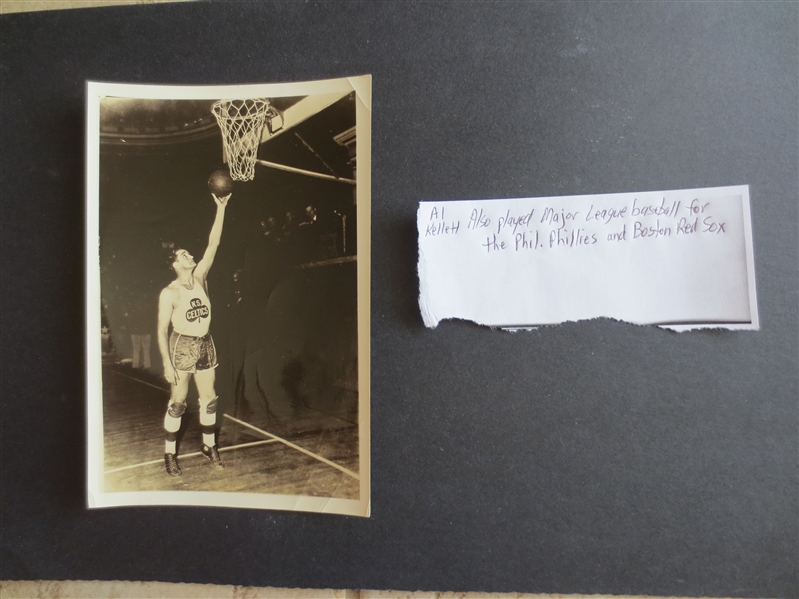 Al
Kellett Also played Major League baseball for
the Phil. Phillies and Boston Red Sox
N.Y.
CELTICS